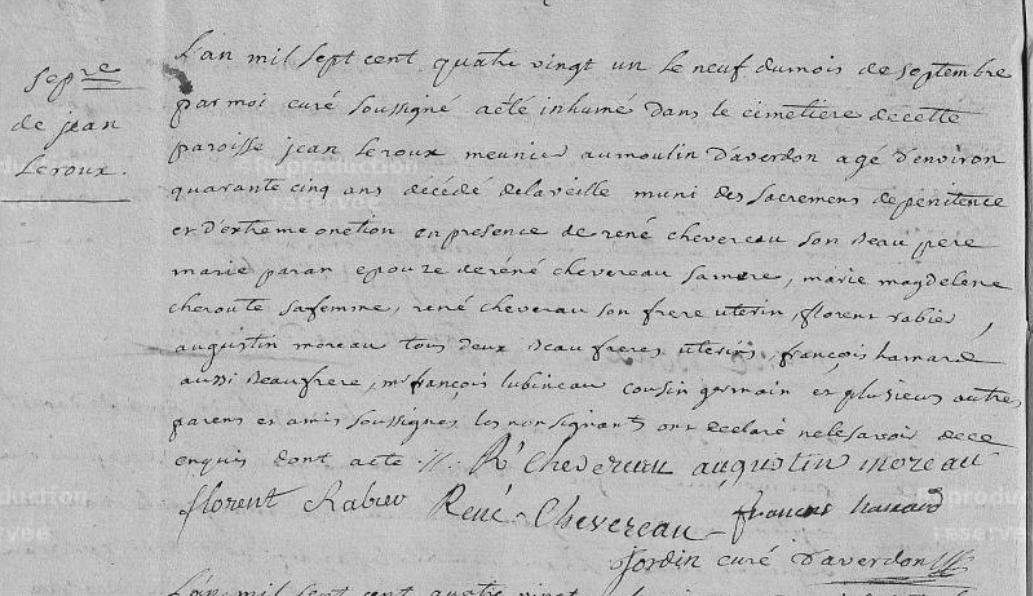 Sep^re
de jean
Leroux.
L'an mil sept cent quatre vingt un le neuf du mois de septembre
par moi curé soussigné a été inhumé dans le cimetiere decette
paroisse jean Leroux meunier au moulin D'averdon agé d'environ
quarante cinq ans décédé delaveille muni des sacremens de pénitence
et d'extreme onction en presence de rené chevereau son beau pere
marie paran epouze de réné chevereau sa mere, marie magdelene
cheroute sa femme, rené cheverau son frere uterin, florent rabier,
augustin moreau tous deux beaufreres uterins, françois hamard
aussi beaufrere, mr françois lubineau cousin germain et plusieurs autres
parens et amis soussignes, les non signants ont declaré ne le savoir de ce
enquis dont acte ·//. R Chevereau augustin moreau
florent Rabier René Chevereau françois hamard
Jordin curé D'averdon
L'an mil sept cent quatre vingt